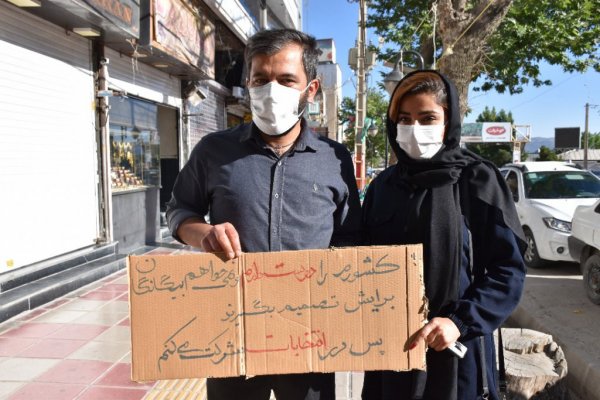 کشورم را دوست دارم نمی خواهم بیگانگان
برایش تصمیم بگیرند
پس در انتخابات شرکت می کنم